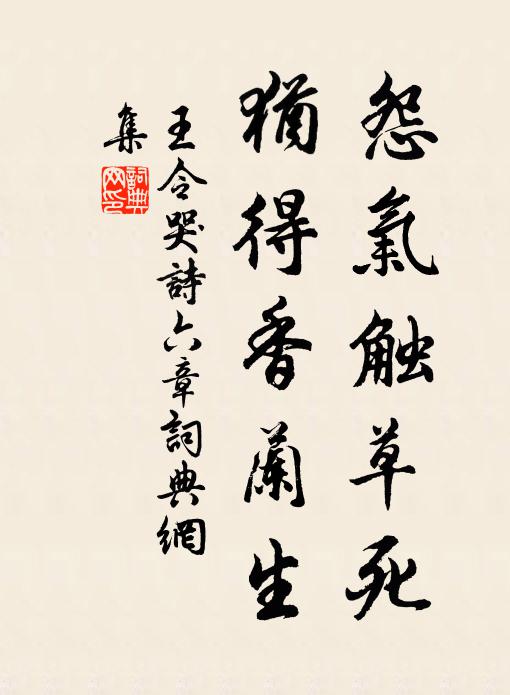 怨氣触草死
猶得香蘭生
王令哭詩六章詞典網
集
詞典
网印